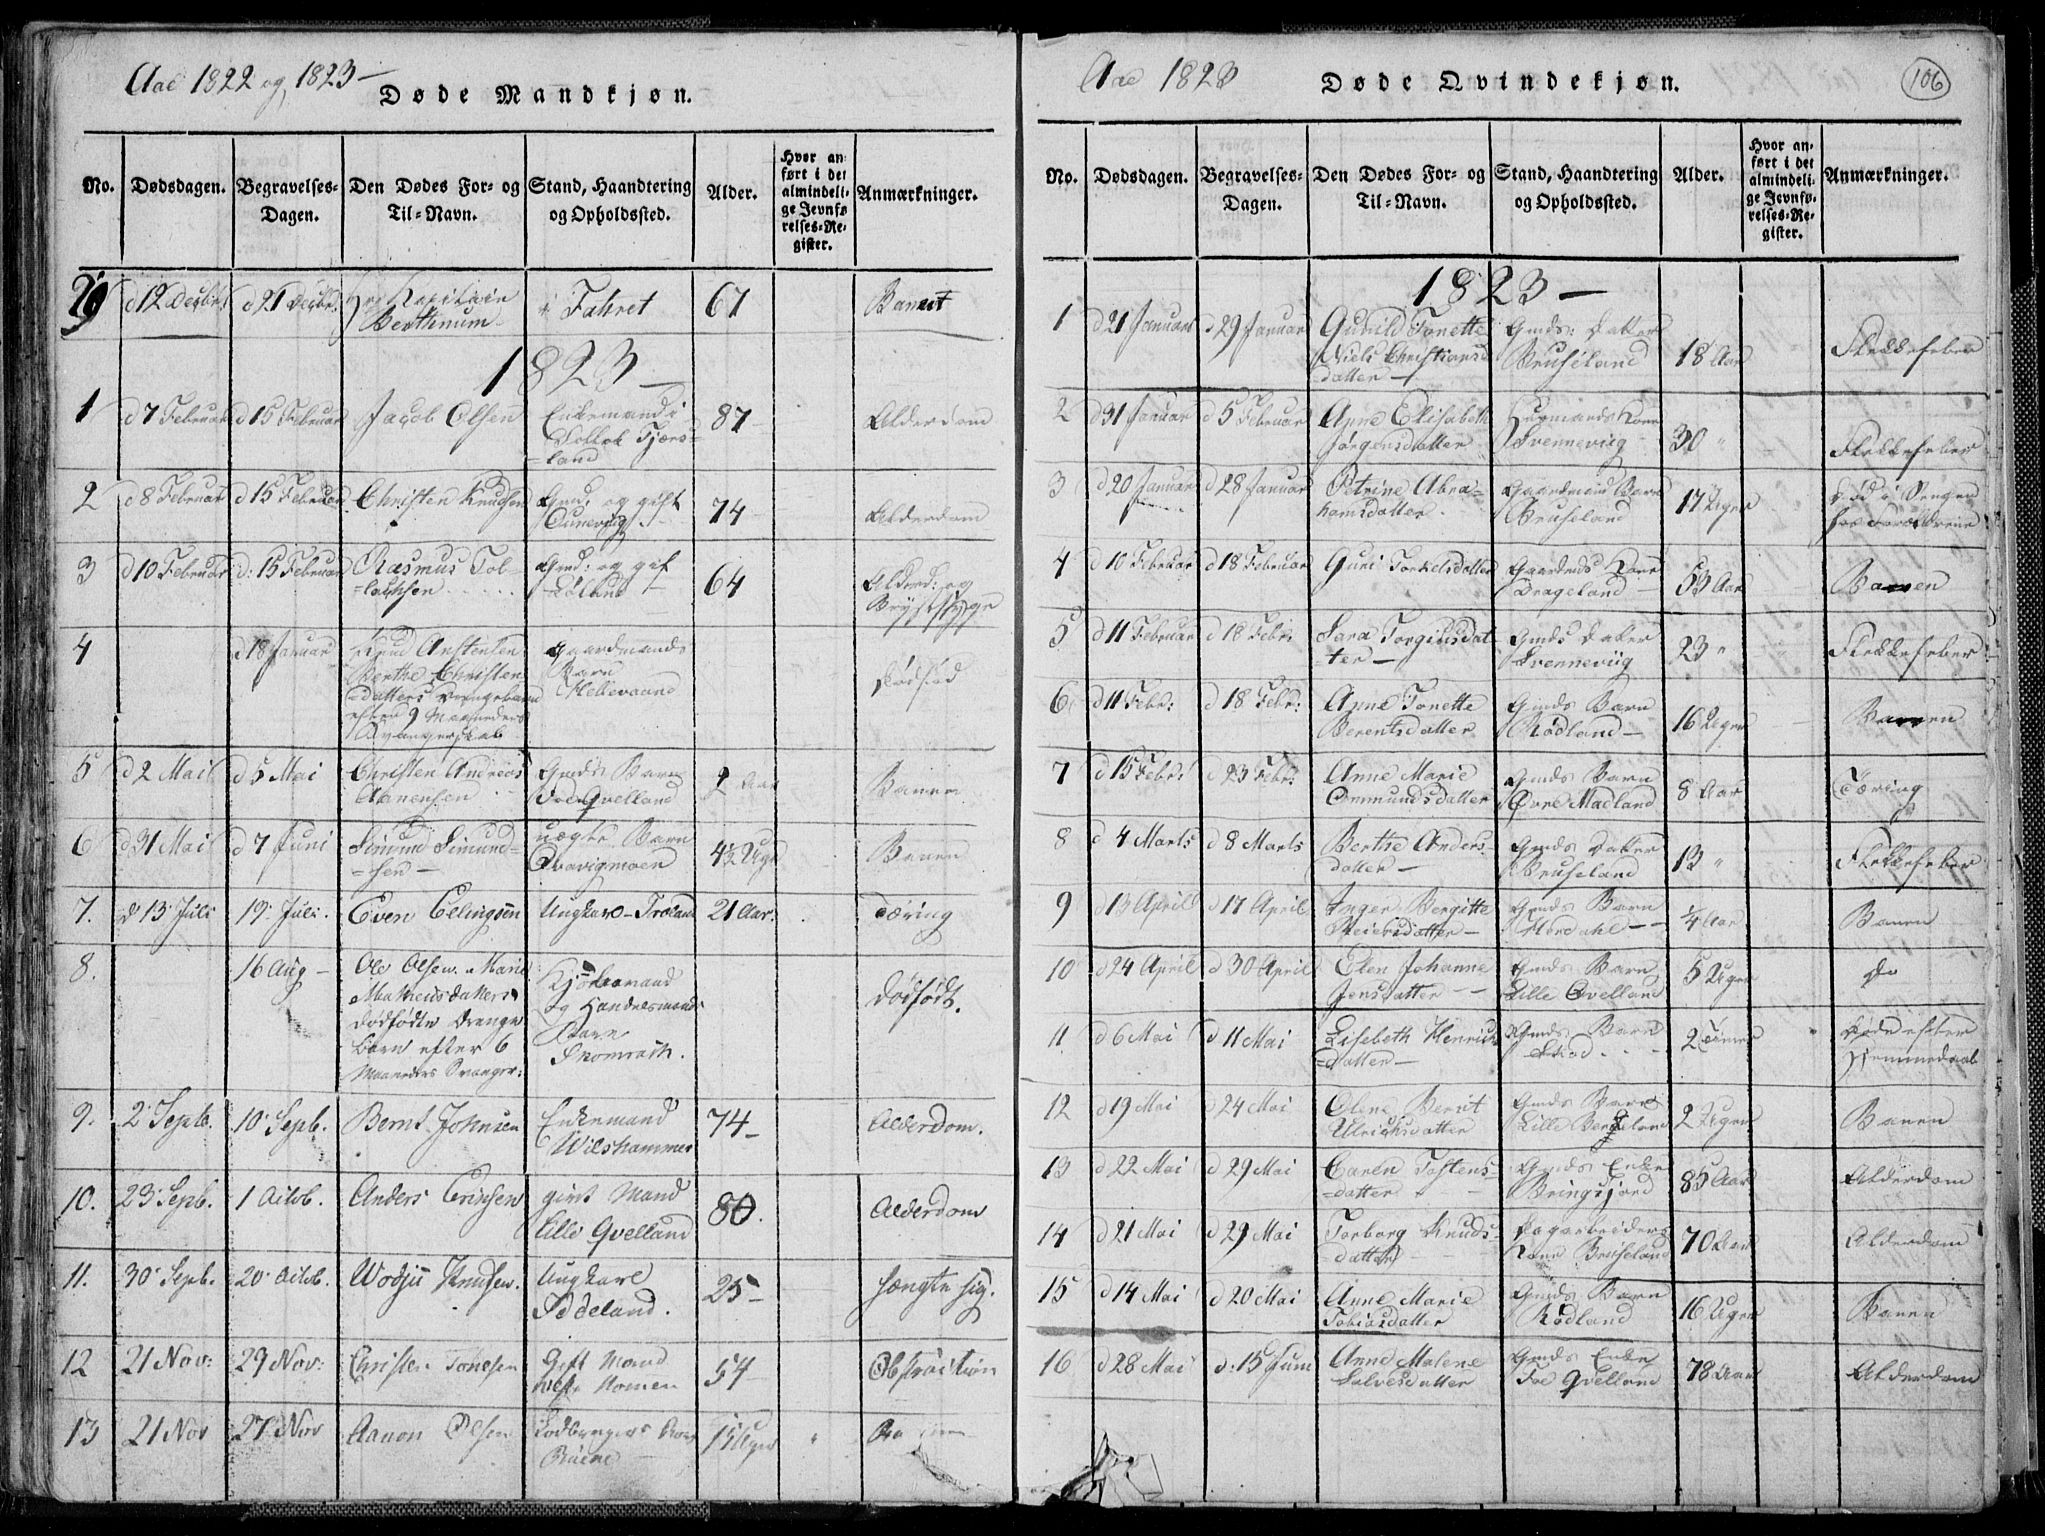 Aar 1822 og 1823 —
Døde Mandkjøn.
No.
Dødsdagen.
Begravelses-
Dagen.
Den Dødes For- og
Til-Navn.
Stand, Haandtering
og Opholdssted.
Alder.
Hvor an-
ført i det
almindeli-
ge Jevnfø-
relses-Re-
gister.
Anmærkninger.
d 12 Decbr: d 21 Decbr:
Berthnum
i Fahret
67
1823 —
1 d 7 Februar d 15 Februar Jacob Olsen
Enkemand i
land
87
Alderdom
2 d 8 Februar d 15 Februar Christen Knudsen
Gmd: og gift
74
Alderdom
3 d 10 Februar d: 15 Februar Rasmus Tol-
=laksen
Gmd: og gift
64
Alderd: og
Brystsyge
4
d 18 Januar
Knud
Berthe Christens
datters
efter 9 Maaneders
Svangerskab
Gaardmands
Barn
Hellevaand
dødfød
5 d 2 Mai d 5 Mai
Christen Andreas
Aanensen
Gmds Barn
Foe Qvelland
2 Aar
Barnen
6 d 31 Mai d 7 Juni
Simund Simund-
=sen —
uægte Barn
Qvavigmoen
4½ Uge
7. d 13 Juli 19. Juli. Even Elingsen Ungkarl - 21 Aar. Tæring
8.
16 Aug —
Ole Olsen. Marie
Mathiasdatters
dødfødte Drenge
barn efter 6
Maaneders Svanger:
og Handelsmands
Barn
Snomrak.
dødfødt.
9. 2 Septb. 10 Septb. Bernt Johnsen
Enkemand
Wilshammer
74 —
Alderdom.
10. 23 Septb. 1 Octob. Anders
givt Mand
Lille Qvelland
80.
Alderdom
11. 30 Septb. 20 Octob. Knudsen.
Ungkarl
Feddeland.
25 —
hængte sig.
12 21 Nov: 29 Nov: Christen Tønesen
Gift Mand
Nomen
54
Obstruction
13 21 Nov 27 Nov Aanon Olsen
15 Uger
Aar 1823
Døde Qvindekjøn.
106
No.
Dødsdagen.
Begravelses-
Dagen.
Den Dødes For- og
Til-Navn.
Stand, Haandtering
og Opholdssted.
Alder.
Hvor an-
ført i det
almindeli-
ge Jevnfø-
relses-Re-
gister.
Anmærkninger.
1823 —
1 d 21 Januar d 29 Januar
Gunild Tonette
Niels Christians
datter —
Gmds: Datter
Bruseland
18 Aar
Flekkefeber
2 d 31 Januar d 5 Februar
Anne Elisabeth
Jørgensdatter
Svennevig
30 "
Flekkefeber
3 d 20 Januar d 28 Januar
Petrine Abra-
hamsdatter
Gaardmands Barn
Bruseland
17 Uger
Død i Sengen
hos Forældrene
4 d 10 Februar d 18 Februar Guri Torkelsdatter
Gaardmds Kone
Drageland —
53 Aar
5 d 11 Februar d 18 Febr:
Sara Torgiusdat-
ter —
Gmds Datter
Svennevig
23 "
Flekkefeber
6 d 11 Febr: d 18 Febr:
Anne Tonette
Berentsdatter
Gmds Barn
Rødland —
16 Uger
7 d 15 Febr: d 23 Febr:
Anne Marie
Ommundsdatter
Gmds Barn
Øvre Madland
8 Aar
Tæring
8 d 4 Marts d 8 Marts
Berthe Anders-
datter —
Gmds Datter
Bruseland
13 "
Flekkefeber
9 d 13 April d 17 April
Inger Bergitte
Reiersdatter —
Gmds Barn
¼ Aar
10 d 24 April d 30 April
Elen Johanne
Jensdatter —
Gmds Barn
Lille Qvelland
5 Uger
do
11. d 6 Mai d 11 Mai
Lisebeth Henrichs
=datter —
Gmds Barn
2 Timer
Døde efter
Hjemmedaab
12 d 19 Mai d 24 Mai
Elene Bernt
Ulrichsdatter
Gmds Barn
Lille Bergeland
2 Uger
13 d 22 Mai d 29 Mai
Caren Tostens-
=datter
Gmds Enke
Bringsjord
85 Aar
Alderdom
14 d 21 Mai d 29 Mai
Torborg Knuds-
datter
Dagarbeiders
Kone Bruseland
70 Aar
Alderdom
15 d 14 Mai d 20 Mai
Anne Marie
Tobiasdatter
Gmds Barn
Rødland
16 Uger
16 d 28 Mai d: 15 Juni
Anne Malene
Salvesdatter
Gmds Enke
Foe Qvelland
78 Aar
Alderdom